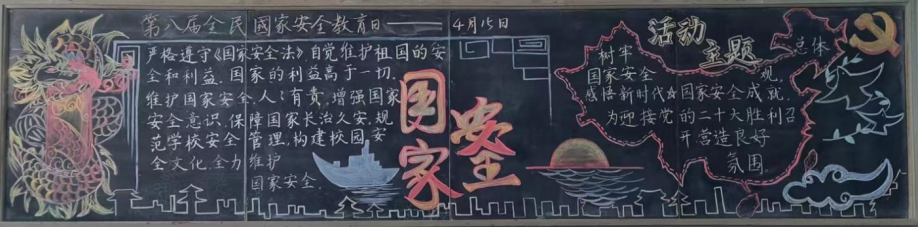 第八届全民國家安全教育日——4月15日
严格遵守《国家安全法》,自觉维护祖国的安
全和利益.国家的利益高于一切.
维护国家安全,人人有责,增强国家
安全意识.保障国家长治久安.规
范学校安全管理,构建校园安
全文化,全力维护
国家安全.
国家
安全
活动
主题
树牢总体
国家安全观
感悟新时代☆国家安全成就.
为迎接党的二十大胜利召
开营造良好
氛围.